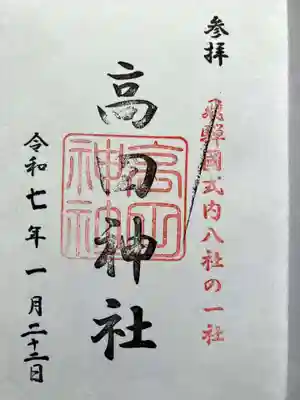 参拝
飛騨國式内八社の一社
高田神社
高田神社
令和七年一月二十二日